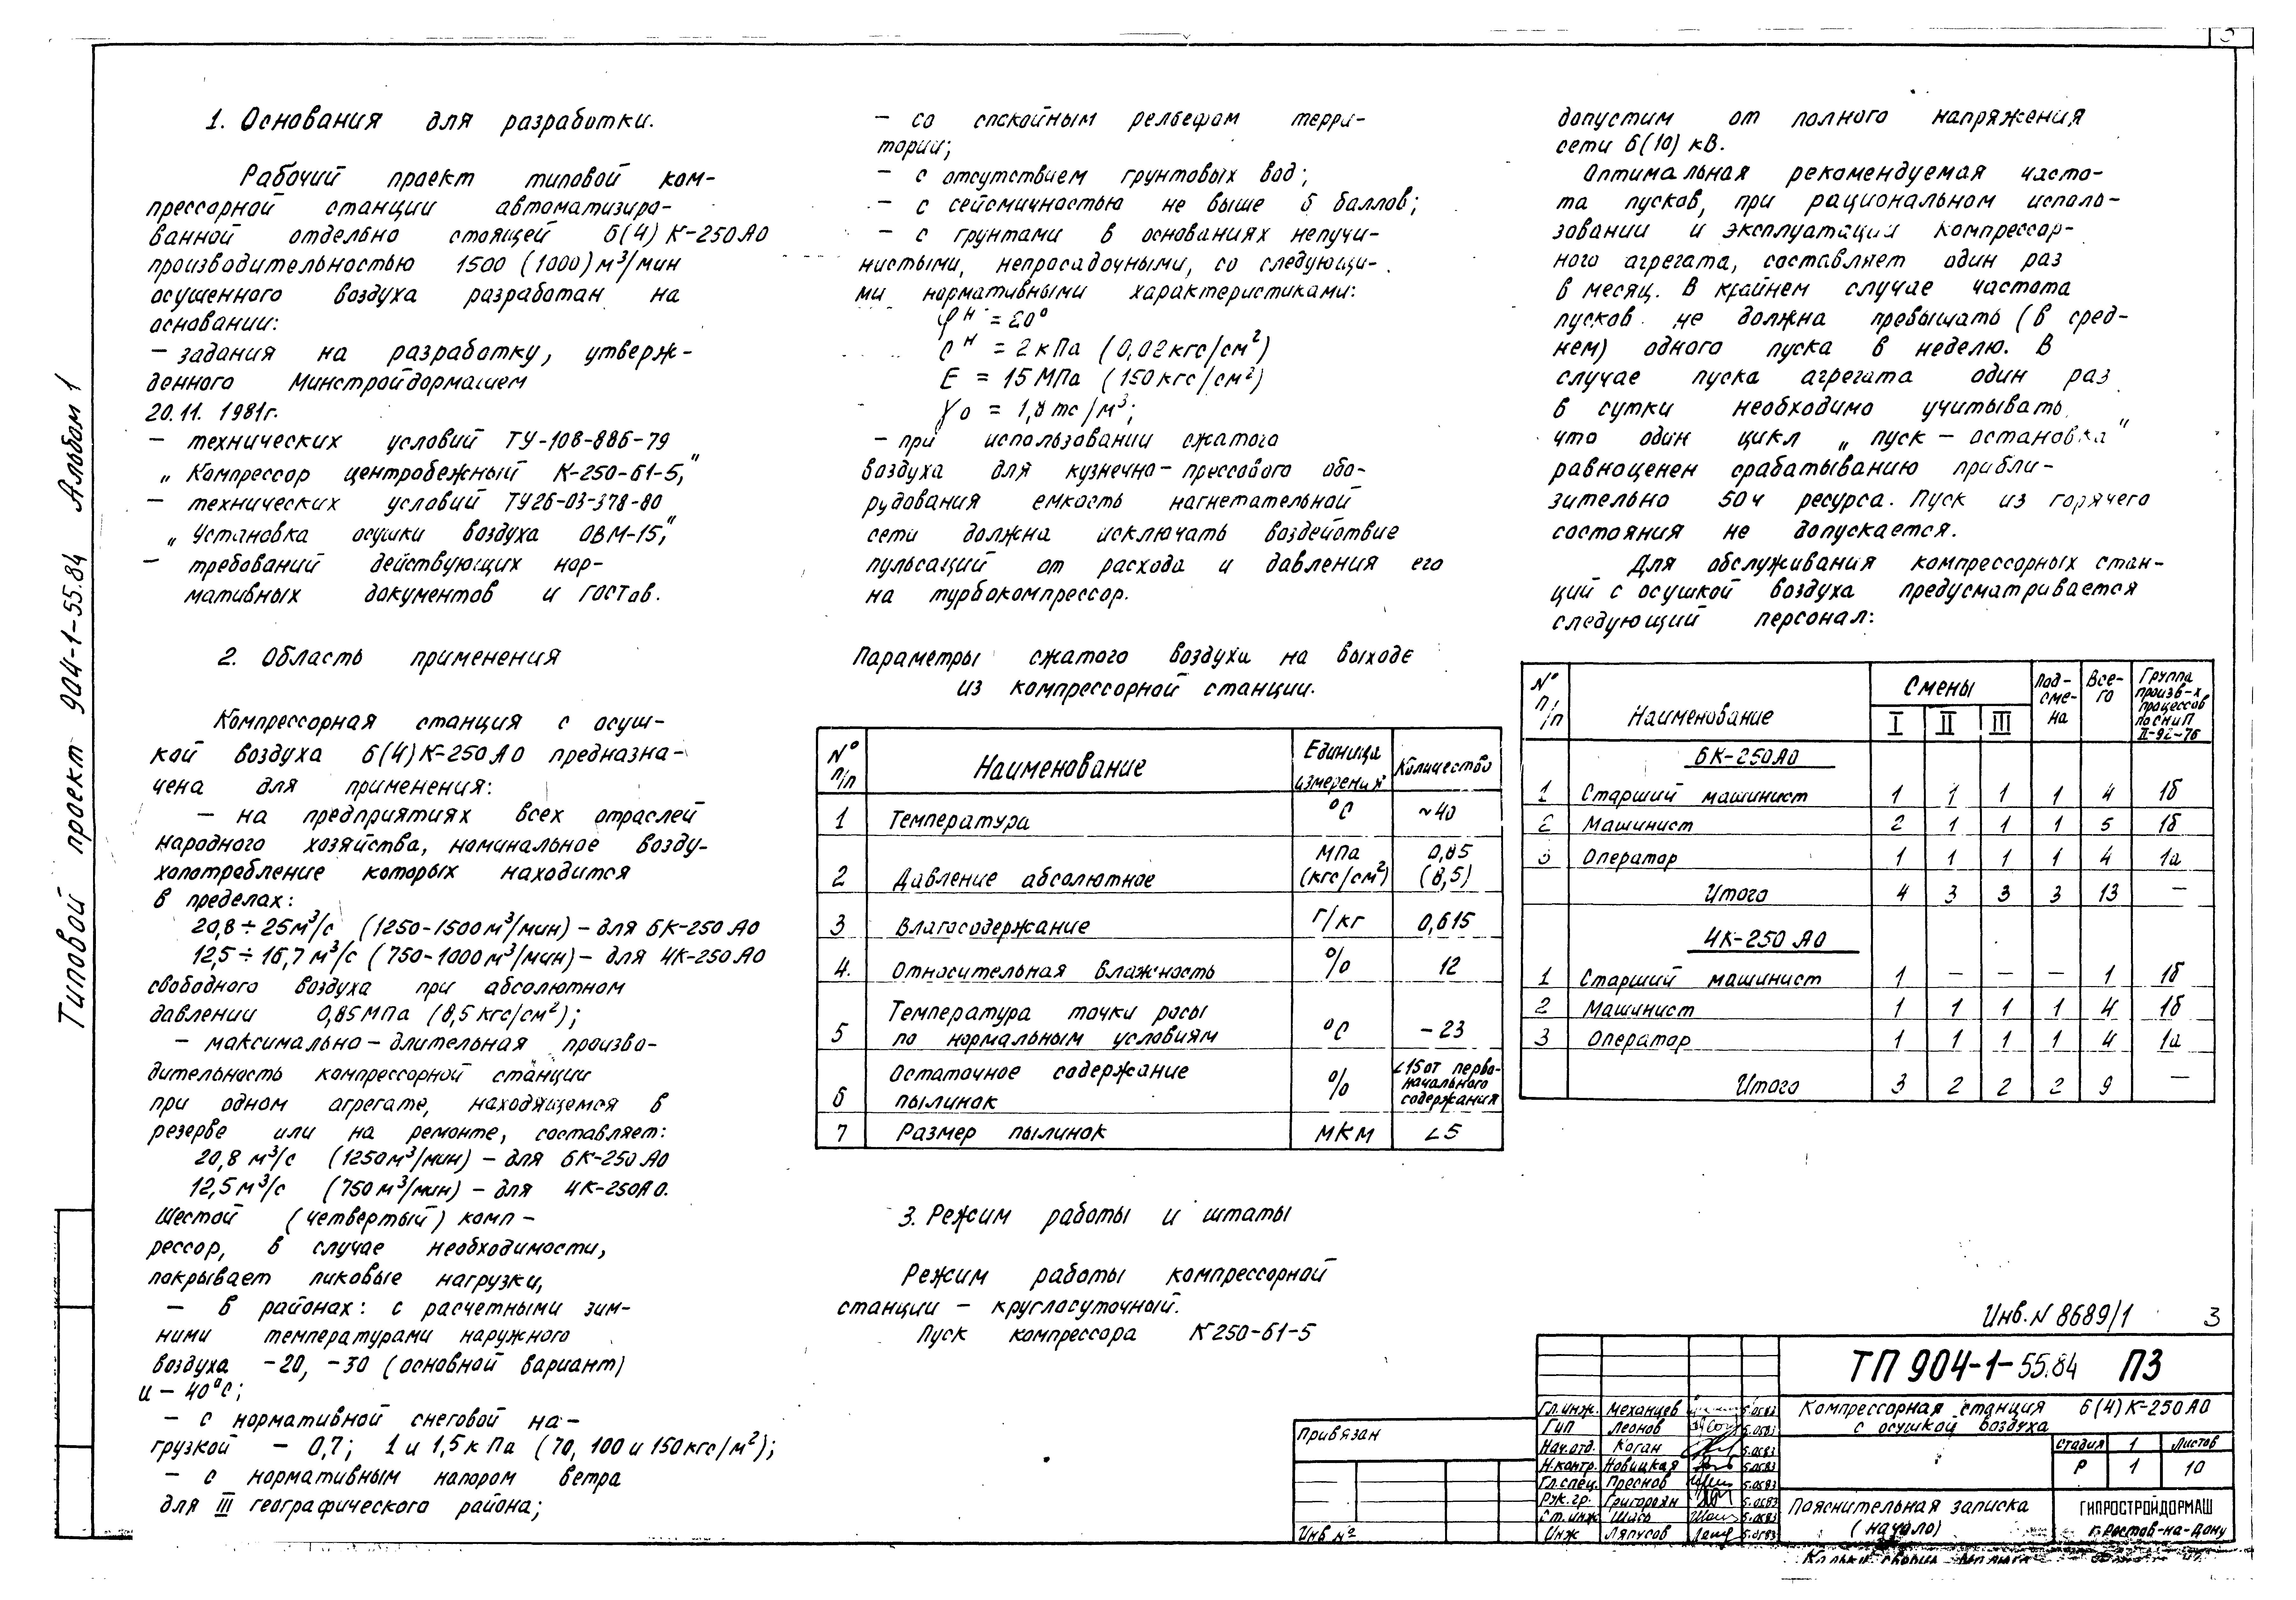 Типовой проект 904-1-55.84 Альбом 1
1. Основания для разработки.
Рабочий проект типовой ком-
прессорной станции автоматизиро-
ванной отдельно стоящей 6(4) К-250 АО
производительностью 1500 (1000) м³/мин
осушенного воздуха разработан на
основании:
— задания на разработку, утверж-
денного Минстройдормашем
20.11. 1981г.
— технических условий ТУ-108-886-79
„Компрессор центробежный К-250-61-5,"
— технических условий ТУ26-03-378-80
„Установка осушки воздуха ОВМ-15,"
— требований действующих нор-
мативных документов и гостов.
2. Область применения
Компрессорная станция с осуш-
кой воздуха 6(4) К-250 АО предназна-
чена для применения:
— на предприятиях всех отраслей
народного хозяйства, номинальное возду-
хопотребление которых находится
в пределах:
20,8 ÷ 25 м³/с (1250-1500 м³/мин) — для 6К-250 АО
12,5 ÷ 16,7 м³/с (750-1000 м³/мин) — для 4К-250 АО
свободного воздуха при абсолютном
давлении 0,85 МПа (8,5 кгс/см²);
— максимально-длительная произво-
дительность компрессорной станции
при одном агрегате, находящемся в
резерве или на ремонте, составляет:
20,8 м³/с (1250 м³/мин) — для 6К-250 АО
12,5 м³/с (750 м³/мин) — для 4К-250 АО.
Шестой (четвертый) комп-
рессор, в случае необходимости,
покрывает пиковые нагрузки,
— в районах: с расчетными зим-
ними температурами наружного
воздуха -20, -30 (основной вариант)
и -40°С;
— с нормативной снеговой на-
грузкой — 0,7; 1 и 1,5 кПа (70, 100 и 150 кгс/м²);
— с нормативным напором ветра
для III географического района;
— со спокойным рельефом терри-
тории;
— с отсутствием грунтовых вод;
— с сейсмичностью не выше 6 баллов;
— с грунтами в основаниях непучи-
нистыми, непросадочными, со следующи-
ми нормативными характеристиками:
φн = 20°
Сн = 2 кПа (0,02 кгс/см²)
Е = 15 МПа (150 кгс/см²)
γо = 1,8 тс/м³;
— при использовании сжатого
воздуха для кузнечно-прессового обо-
рудования емкость нагнетательной
сети должна исключать воздействие
пульсаций от расхода и давления его
на турбокомпрессор.
Параметры сжатого воздуха на выходе
из компрессорной станции.
№ п/п Наименование Единица измерения Количество
1 Температура °С ~40
2 Давление абсолютное МПа (кгс/см²) 0,85 (8,5)
3 Влагосодержание г/кг 0,615
4. Относительная влажность % 12
5 Температура точки росы по нормальным условиям °С -23
6 Остаточное содержание пылинок % <15 от перво-начального содержания
7 Размер пылинок мкм <5
3. Режим работы и штаты
Режим работы компрессорной
станции — круглосуточный.
Пуск компрессора К250-61-5
допустим от полного напряжения
сети 6(10) кВ.
Оптимальная рекомендуемая часто-
та пусков, при рациональном исполь-
зовании и эксплуатации компрессор-
ного агрегата, составляет один раз
в месяц. В крайнем случае частота
пусков не должна превышать (в сред-
нем) одного пуска в неделю. В
случае пуска агрегата один раз
в сутки необходимо учитывать,
что один цикл „пуск — остановка"
равноценен срабатыванию прибли-
зительно 50 ч ресурса. Пуск из горячего
состояния не допускается.
Для обслуживания компрессорных стан-
ций с осушкой воздуха предусматривается
следующий персонал:
№ п/п Наименование Смены I II III Под-сме-на Все-го Группа произв-х процессов по СНиП II-92-76
6К-250 АО
1 Старший машинист 1 1 1 1 4 1б
2 Машинист 2 1 1 1 5 1б
3 Оператор 1 1 1 1 4 1а
Итого 4 3 3 3 13 —
4К-250 АО
1 Старший машинист 1 — — — 1 1б
2 Машинист 1 1 1 1 4 1б
3 Оператор 1 1 1 1 4 1а
Итого 3 2 2 2 9 —
Инв. N 8689/1 3
ТП 904-1-55.84 ПЗ
Привязан
Инв №
Гл. инж. Механцев 5.0583
ГИП Леонов 5.0583
Нач. отд. Коган 5.0583
Н. контр. Новицкая 5.0583
Гл. спец. Преснов 5.0583
Рук. гр. Григорян 5.0583
Ст. инж Шась 5.0583
Инж Ляпусов 5.0583
Компрессорная станция 6(4) К-250 АО
с осушкой воздуха
Стадия 1 Листов
Р 1 10
Пояснительная записка
(начало)
ГИПРОСТРОЙДОРМАШ
г. Ростов-на-Дону